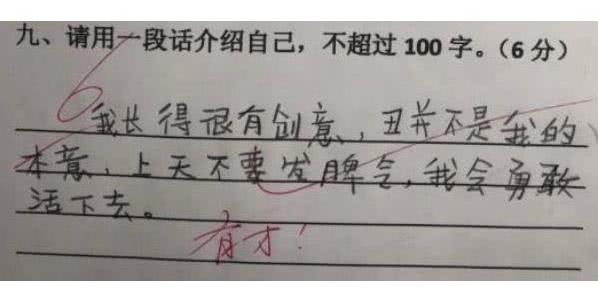 九、请用一段话介绍自己，不超过 100 字。（6 分）
6
我长得很有创意，丑并不是我的
本意，上天不要发脾气，我会勇敢
活下去。
有才！